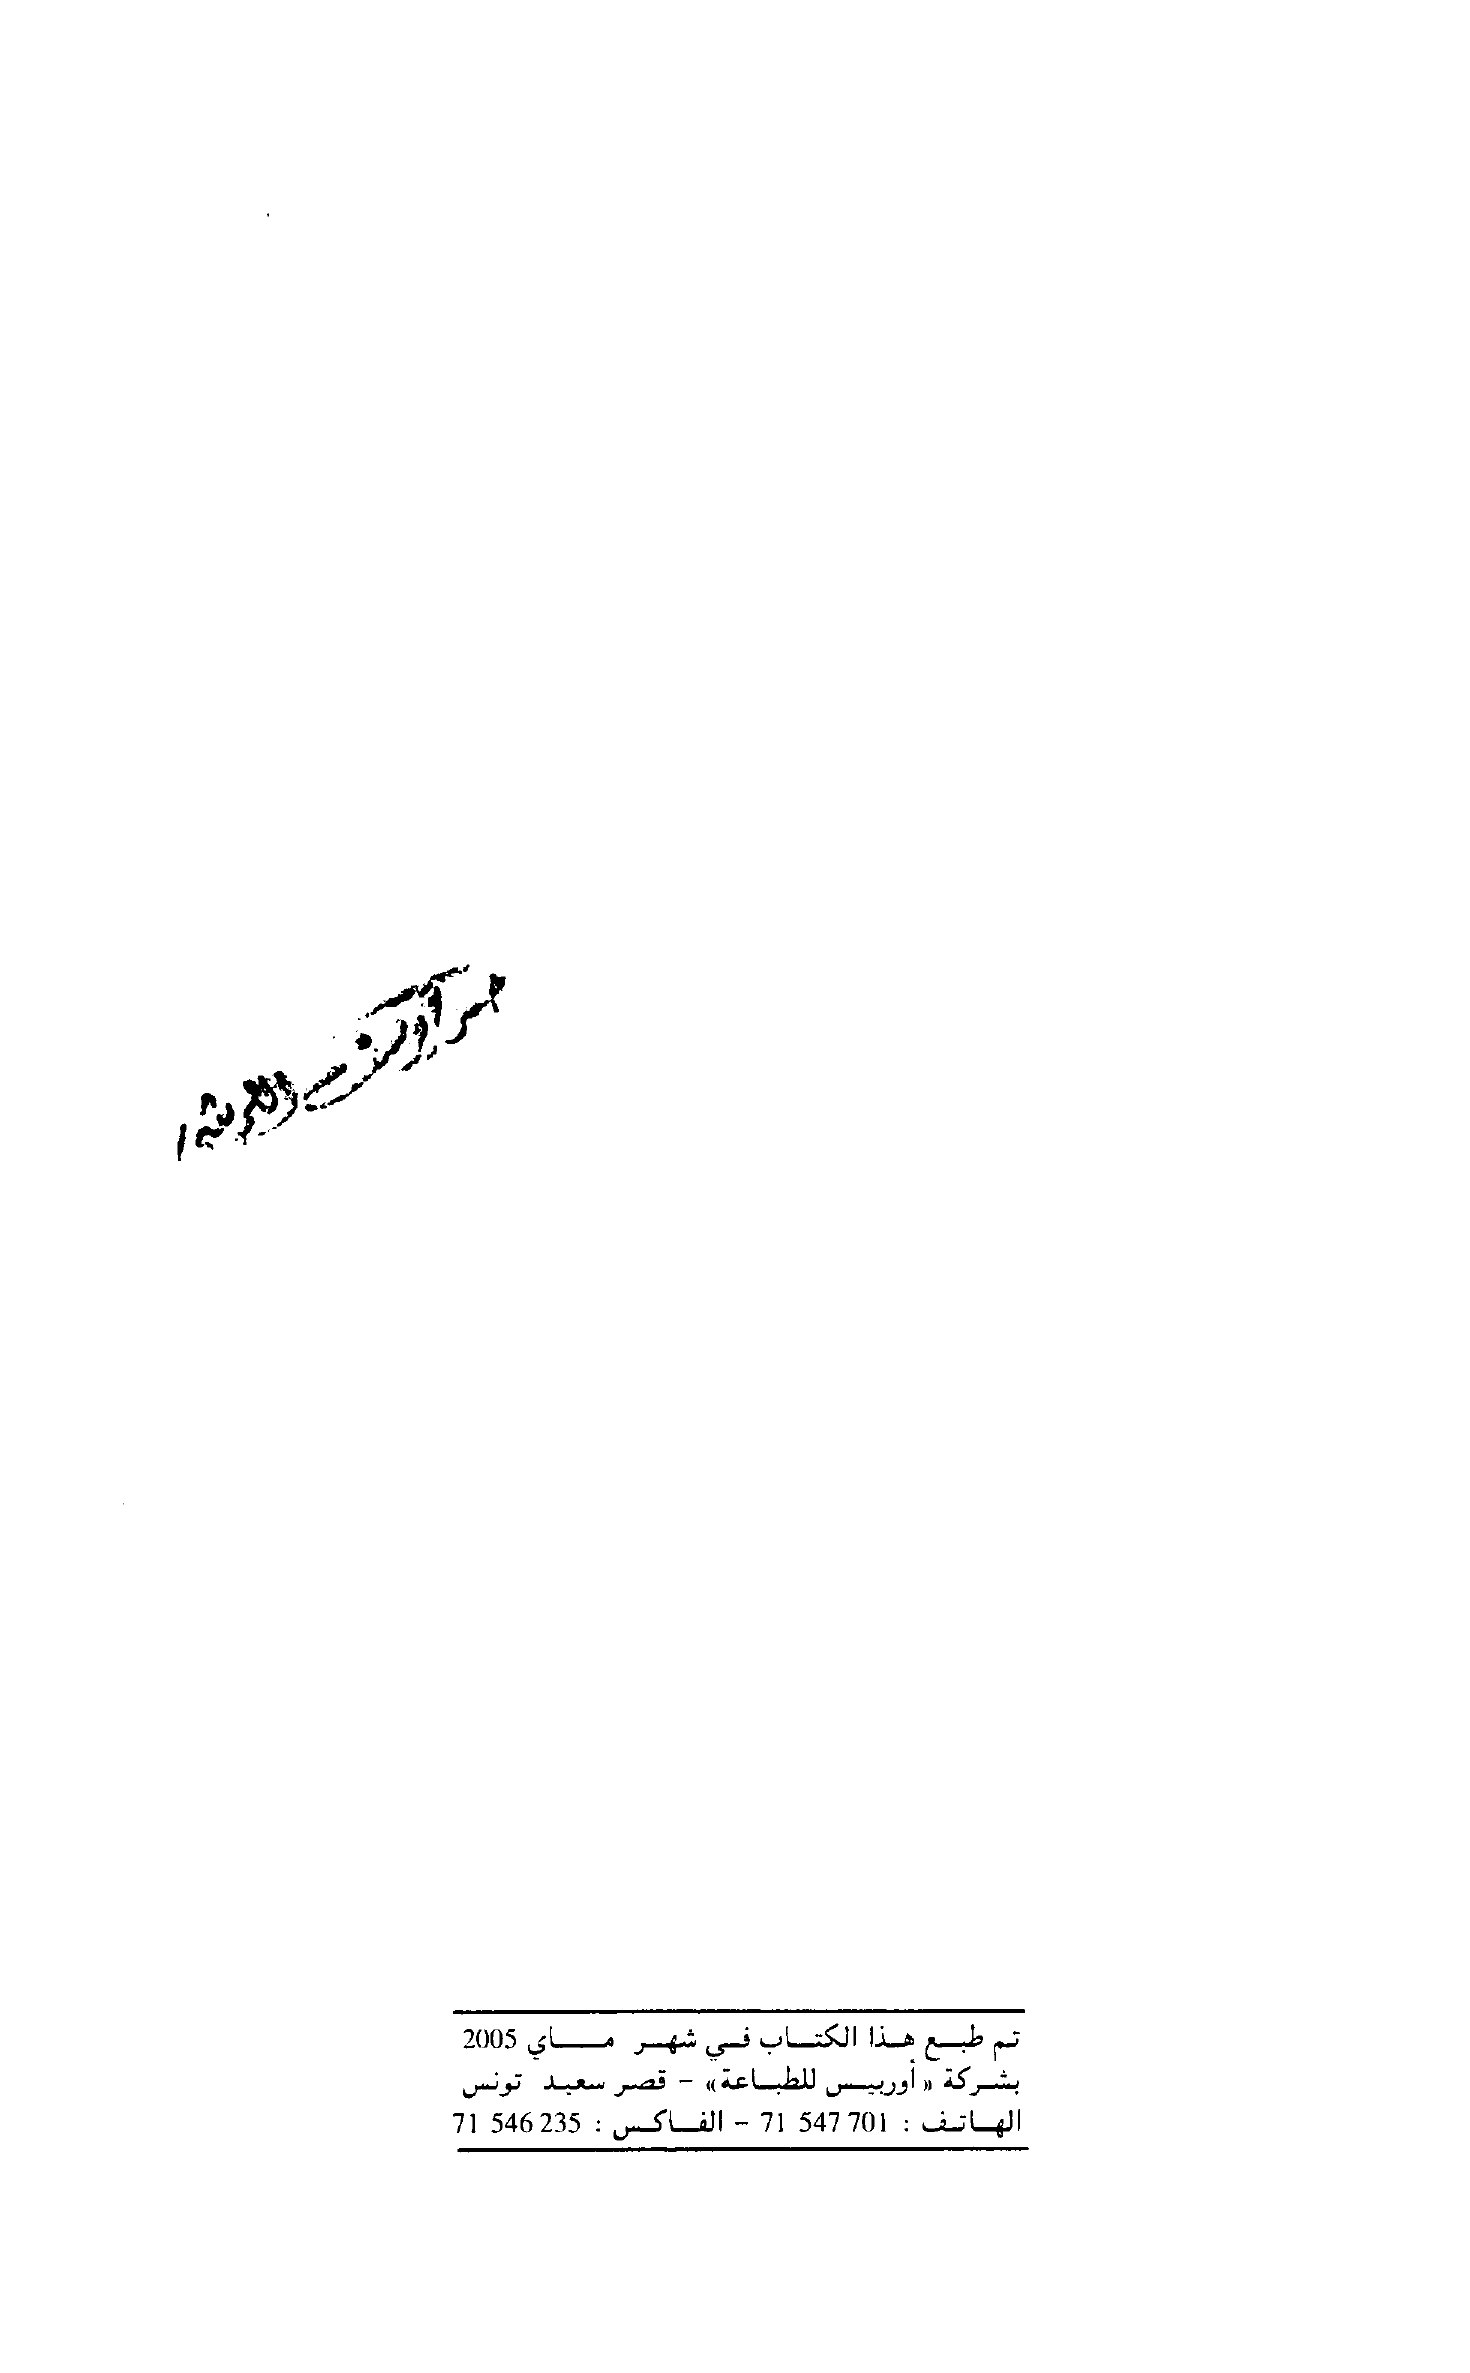 تم طبع هذا الكتاب في شهر ماي 2005
بشركة «أوربيس للطباعة» - قصر سعيد تونس
الهاتف : 701 547 71 - الفاكس : 235 546 71